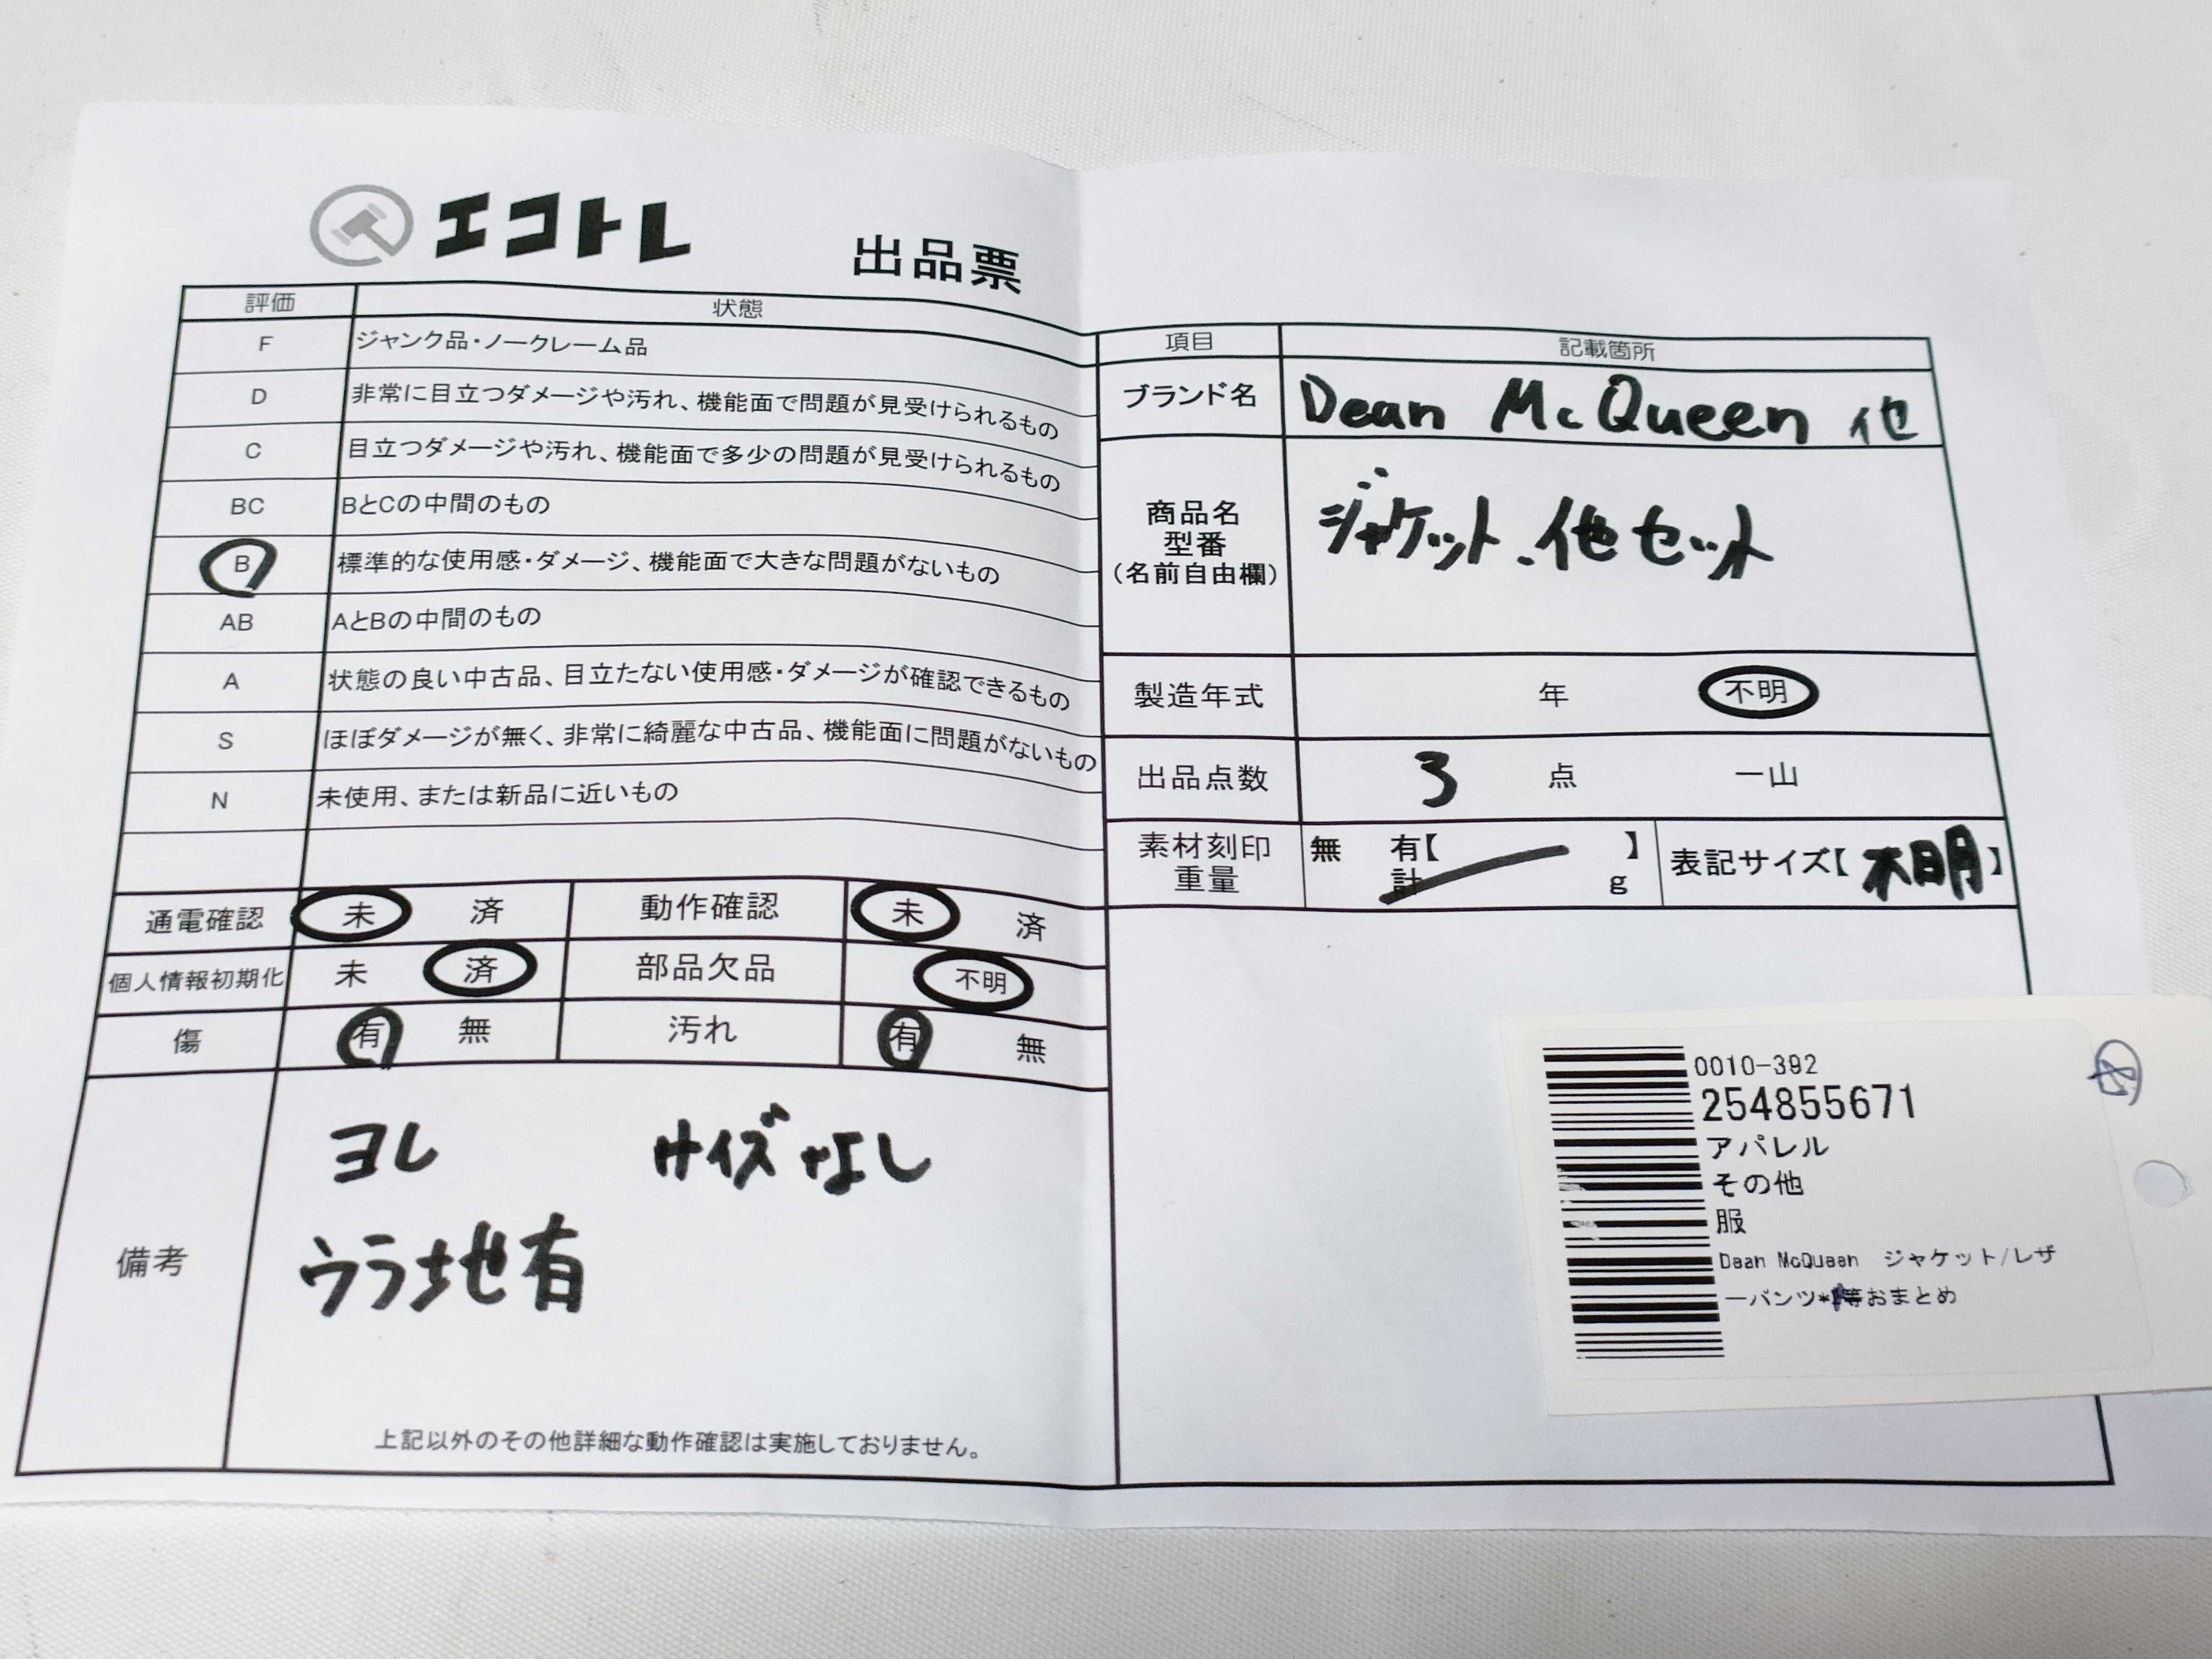 エコトレ 出品票
評価 状態
F ジャンク品・ノークレーム品
D 非常に目立つダメージや汚れ、機能面で問題が見受けられるもの
C 目立つダメージや汚れ、機能面で多少の問題が見受けられるもの
BC BとCの中間のもの
B 標準的な使用感・ダメージ、機能面で大きな問題がないもの
AB AとBの中間のもの
A 状態の良い中古品、目立たない使用感・ダメージが確認できるもの
S ほぼダメージが無く、非常に綺麗な中古品、機能面に問題がないもの
N 未使用、または新品に近いもの
通電確認 未 済 動作確認 未 済
個人情報初期化 未 済 部品欠品 不明
傷 有 無 汚れ 有 無
備考
ヨレ サイズなし
ウラ地有
上記以外のその他詳細な動作確認は実施しておりません。
項目 記載箇所
ブランド名 Dean McQueen 他
商品名
型番
(名前自由欄)
ジャケット、他セット
製造年式 年 不明
出品点数 3 点 一山
素材刻印 無 有【 】
重量 計 g
表記サイズ【不明】
0010-392
254855671
アパレル
その他
服
Dean McQueen ジャケット/レザ
ーパンツ*等おまとめ